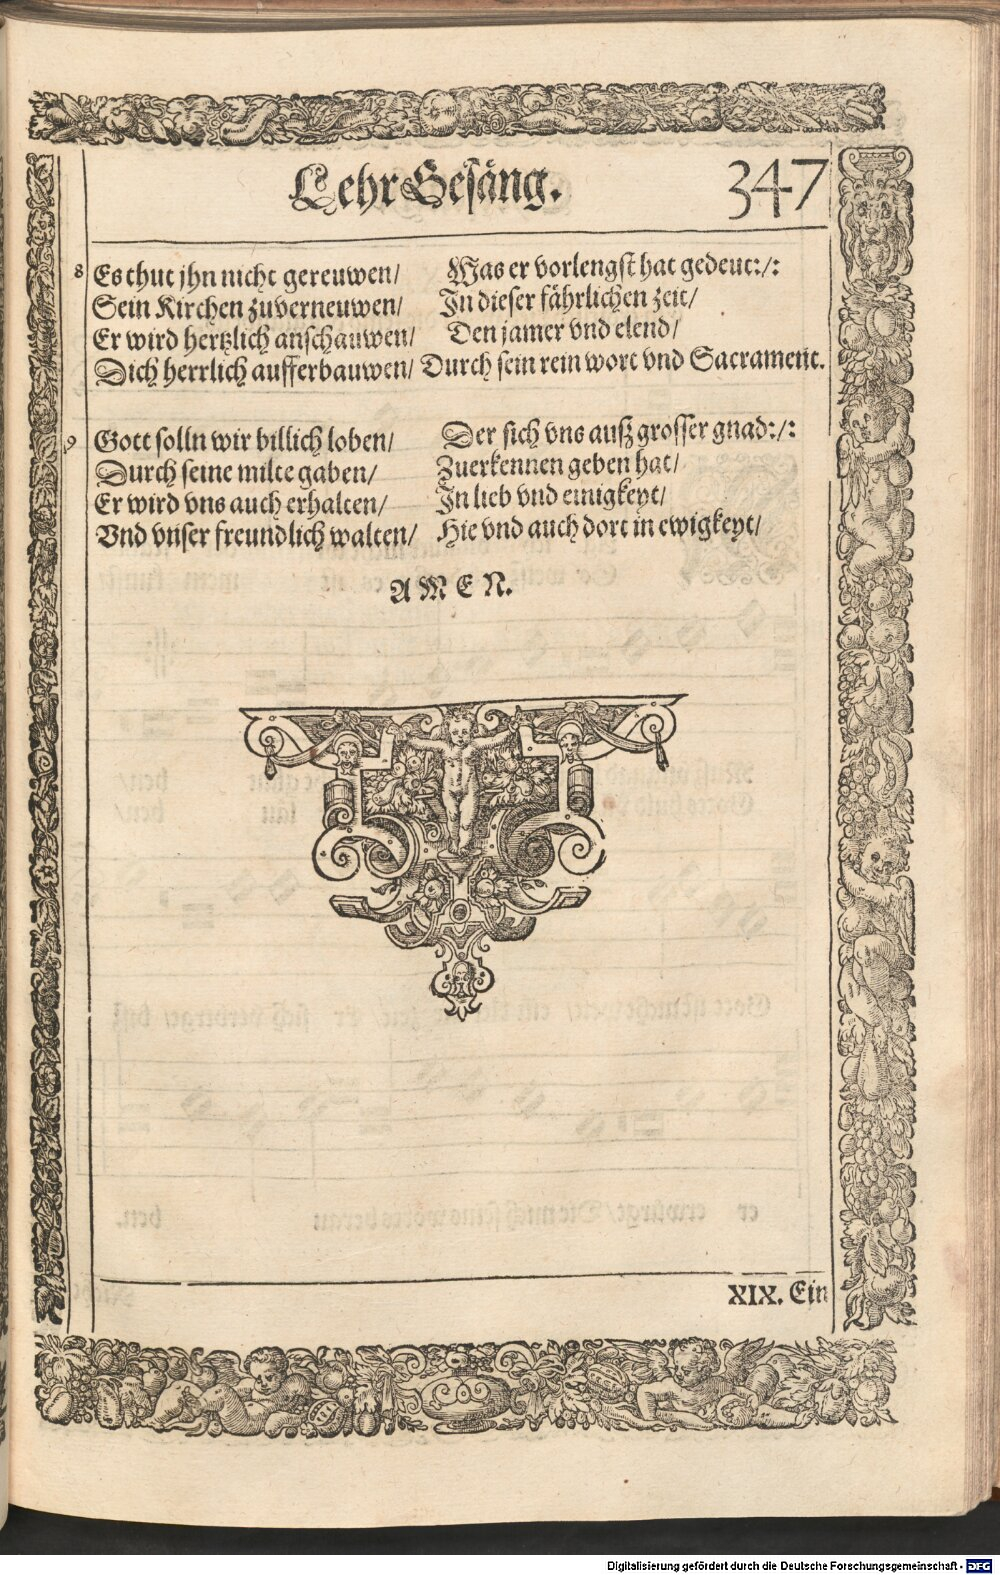 Lehr Gesäng. 347
8 Es thut jhn nicht gereuwen/ Was er vorlengst hat gedeut:/:
Sein Kirchen zuverneuwen/ In dieser fährlichen zeit/
Er wird hertzlich anschauwen/ Den jamer vnd elend/
Dich herrlich aufferbauwen/ Durch sein rein wort vnd Sacrament.
9 Gott solln wir billich loben/ Der sich vns auß grosser gnad:/:
Durch seine milte gaben/ Zuerkennen geben hat/
Er wird vns auch erhalten/ In lieb vnd einigkeyt/
Vnd vnser freundlich walten/ Hie vnd auch dort in ewigkeyt/
AMEN.
XIX. Ein
Digitalisierung gefördert durch die Deutsche Forschungsgemeinschaft - DFG